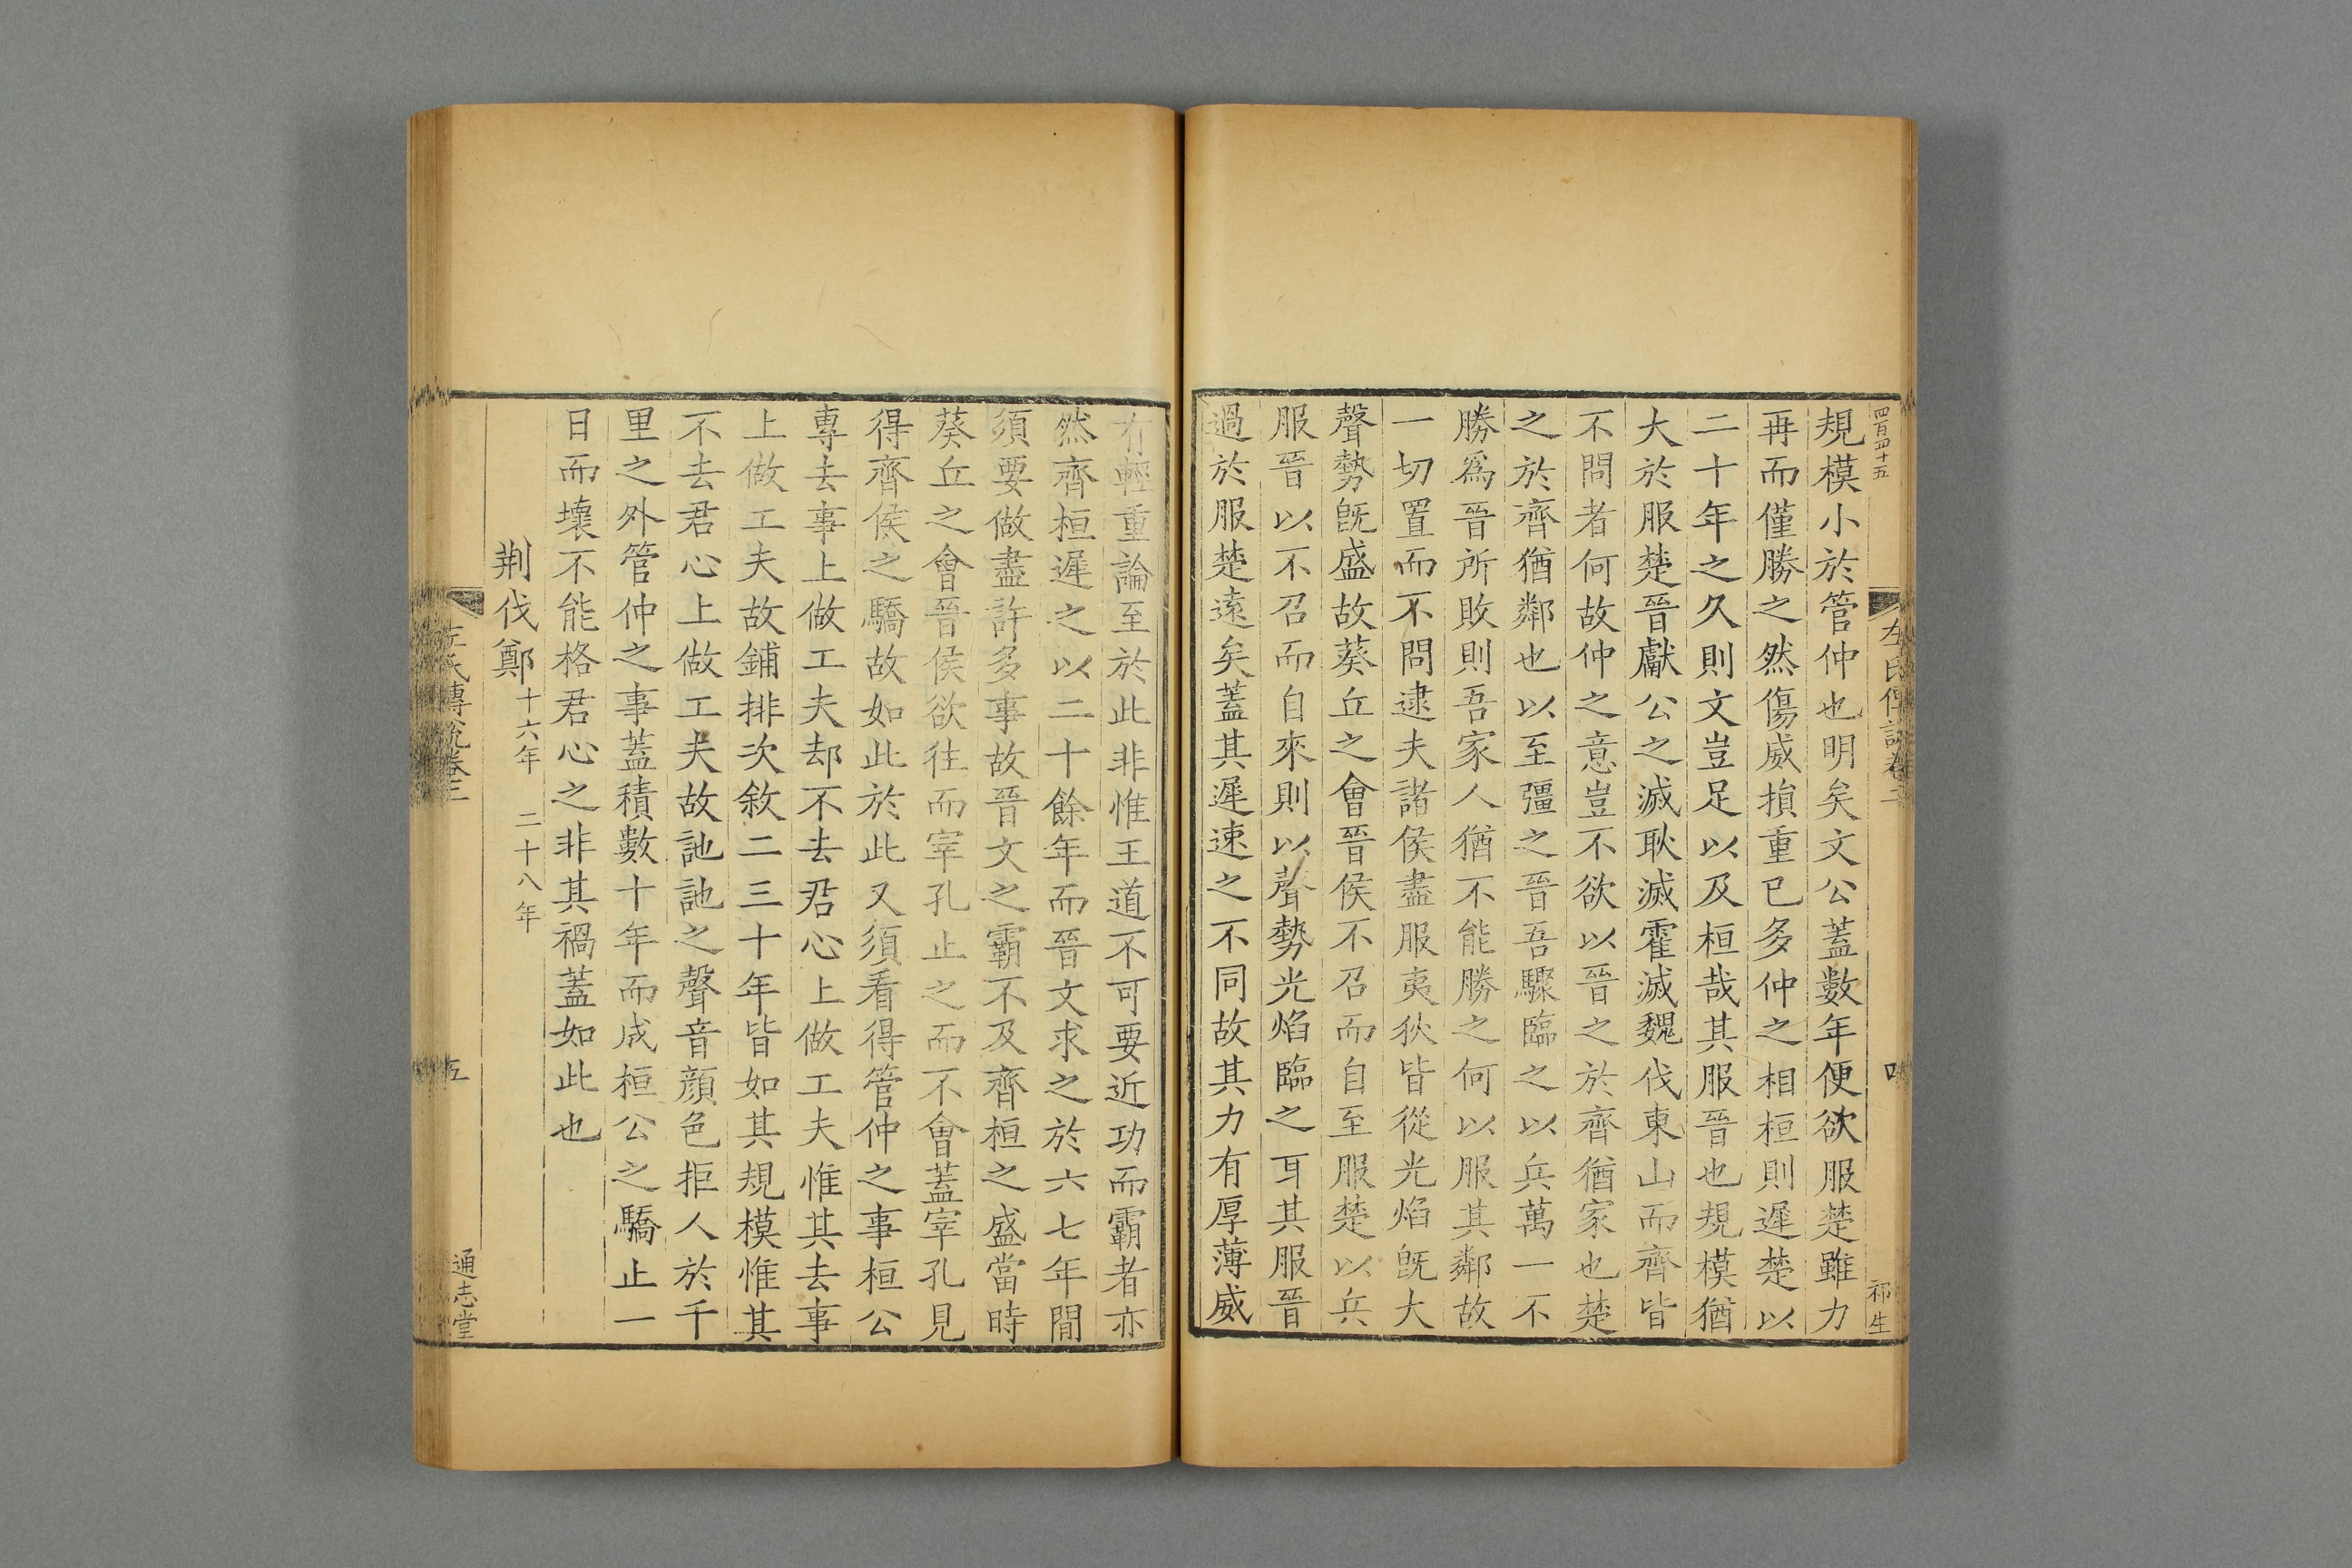 四百四十五
左氏傳說卷
祁生
規模小於管仲也明矣文公蓋數年便欲服楚雖力
再而僅勝之然傷威損重已多仲之相桓則遲楚以
二十年之久則文豈足以及桓哉其服晉也規模猶
大於服楚晉獻公之滅耿滅霍滅魏伐東山而齊皆
不問者何故仲之意豈不欲以晉之於齊猶家也楚
之於齊猶鄰也以至彊之晉吾驟臨之以兵萬一不
勝爲晉所敗則吾家人猶不能勝之何以服其鄰故
一切置而不問逮夫諸侯盡服夷狄皆從光焰旣大
聲勢旣盛故葵丘之會晉侯不召而自至服楚以兵
服晉以不召而自來則以聲勢光焰臨之耳其服晉
過於服楚遠矣蓋其遲速之不同故其力有厚薄威
有輕重論至於此非惟王道不可要近功而霸者亦
然齊桓遲之以二十餘年而晉文求之於六七年間
須要做盡許多事故晉文之霸不及齊桓之盛當時
葵丘之會晉侯欲往而宰孔止之而不會蓋宰孔見
得齊侯之驕故如此於此又須看得管仲之事桓公
專去事上做工夫却不去君心上做工夫惟其去事
上做工夫故鋪排次敘二三十年皆如其規模惟其
不去君心上做工夫故訑訑之聲音顔色拒人於千
里之外管仲之事蓋積數十年而成桓公之驕止一
日而壞不能格君心之非其禍蓋如此也
荆伐鄭十六年 二十八年
左氏傳說卷三
五
通志堂